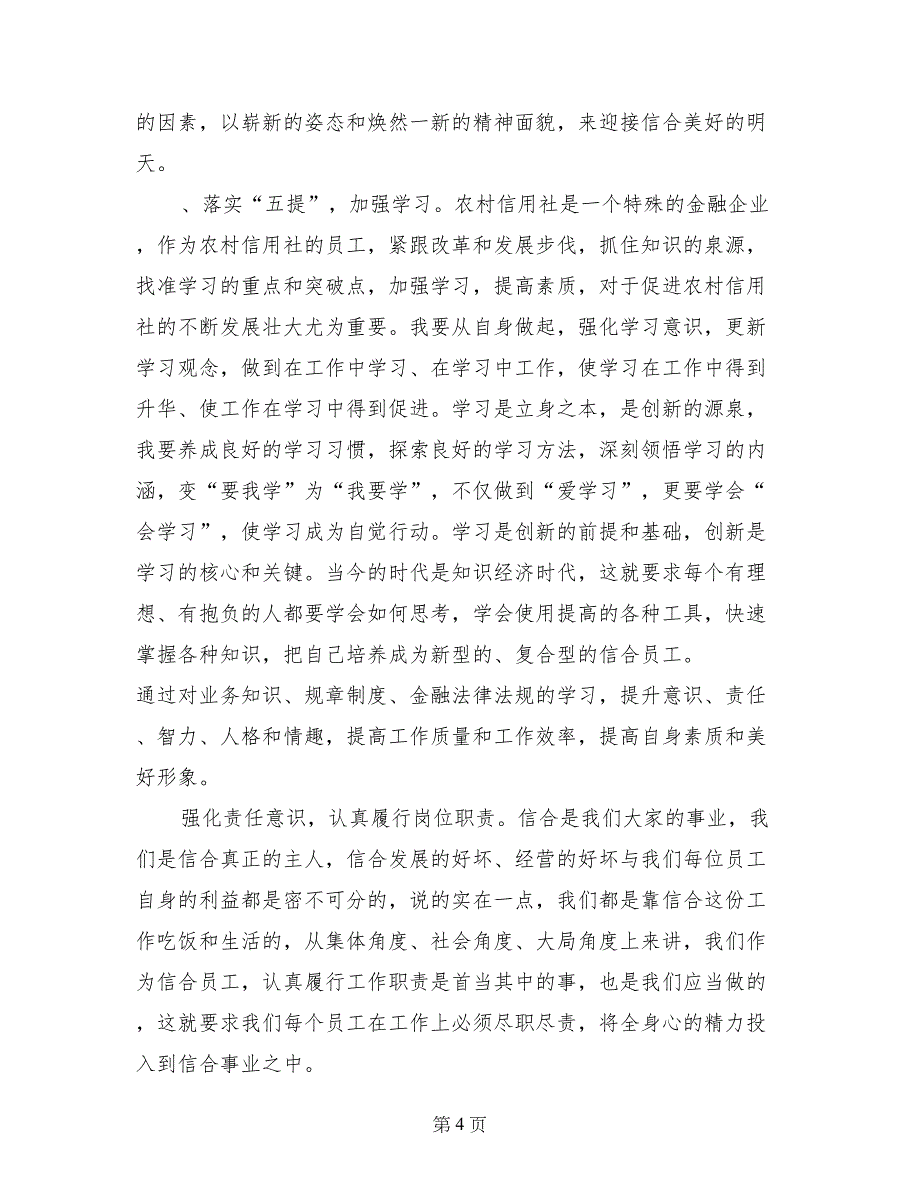 的因素，以崭新的姿态和焕然一新的精神面貌，来迎接信合美好的明
天。
、落实“五提”，加强学习。农村信用社是一个特殊的金融企业
，作为农村信用社的员工，紧跟改革和发展步伐，抓住知识的泉源，
找准学习的重点和突破点，加强学习，提高素质，对于促进农村信用
社的不断发展壮大尤为重要。我要从自身做起，强化学习意识，更新
学习观念，做到在工作中学习、在学习中工作，使学习在工作中得到
升华、使工作在学习中得到促进。学习是立身之本，是创新的源泉，
我要养成良好的学习习惯，探索良好的学习方法，深刻领悟学习的内
涵，变“要我学”为“我要学”，不仅做到“爱学习”，更要学会“
会学习”，使学习成为自觉行动。学习是创新的前提和基础，创新是
学习的核心和关键。当今的时代是知识经济时代，这就要求每个有理
想、有抱负的人都要学会如何思考，学会使用提高的各种工具，快速
掌握各种知识，把自己培养成为新型的、复合型的信合员工。
通过对业务知识、规章制度、金融法律法规的学习，提升意识、责任
、智力、人格和情趣，提高工作质量和工作效率，提高自身素质和美
好形象。
强化责任意识，认真履行岗位职责。信合是我们大家的事业，我
们是信合真正的主人，信合发展的好坏、经营的好坏与我们每位员工
自身的利益都是密不可分的，说的实在一点，我们都是靠信合这份工
作吃饭和生活的，从集体角度、社会角度、大局角度上来讲，我们作
为信合员工，认真履行工作职责是首当其中的事，也是我们应当做的
，这就要求我们每个员工在工作上必须尽职尽责，将全身心的精力投
入到信合事业之中。
第 4 页